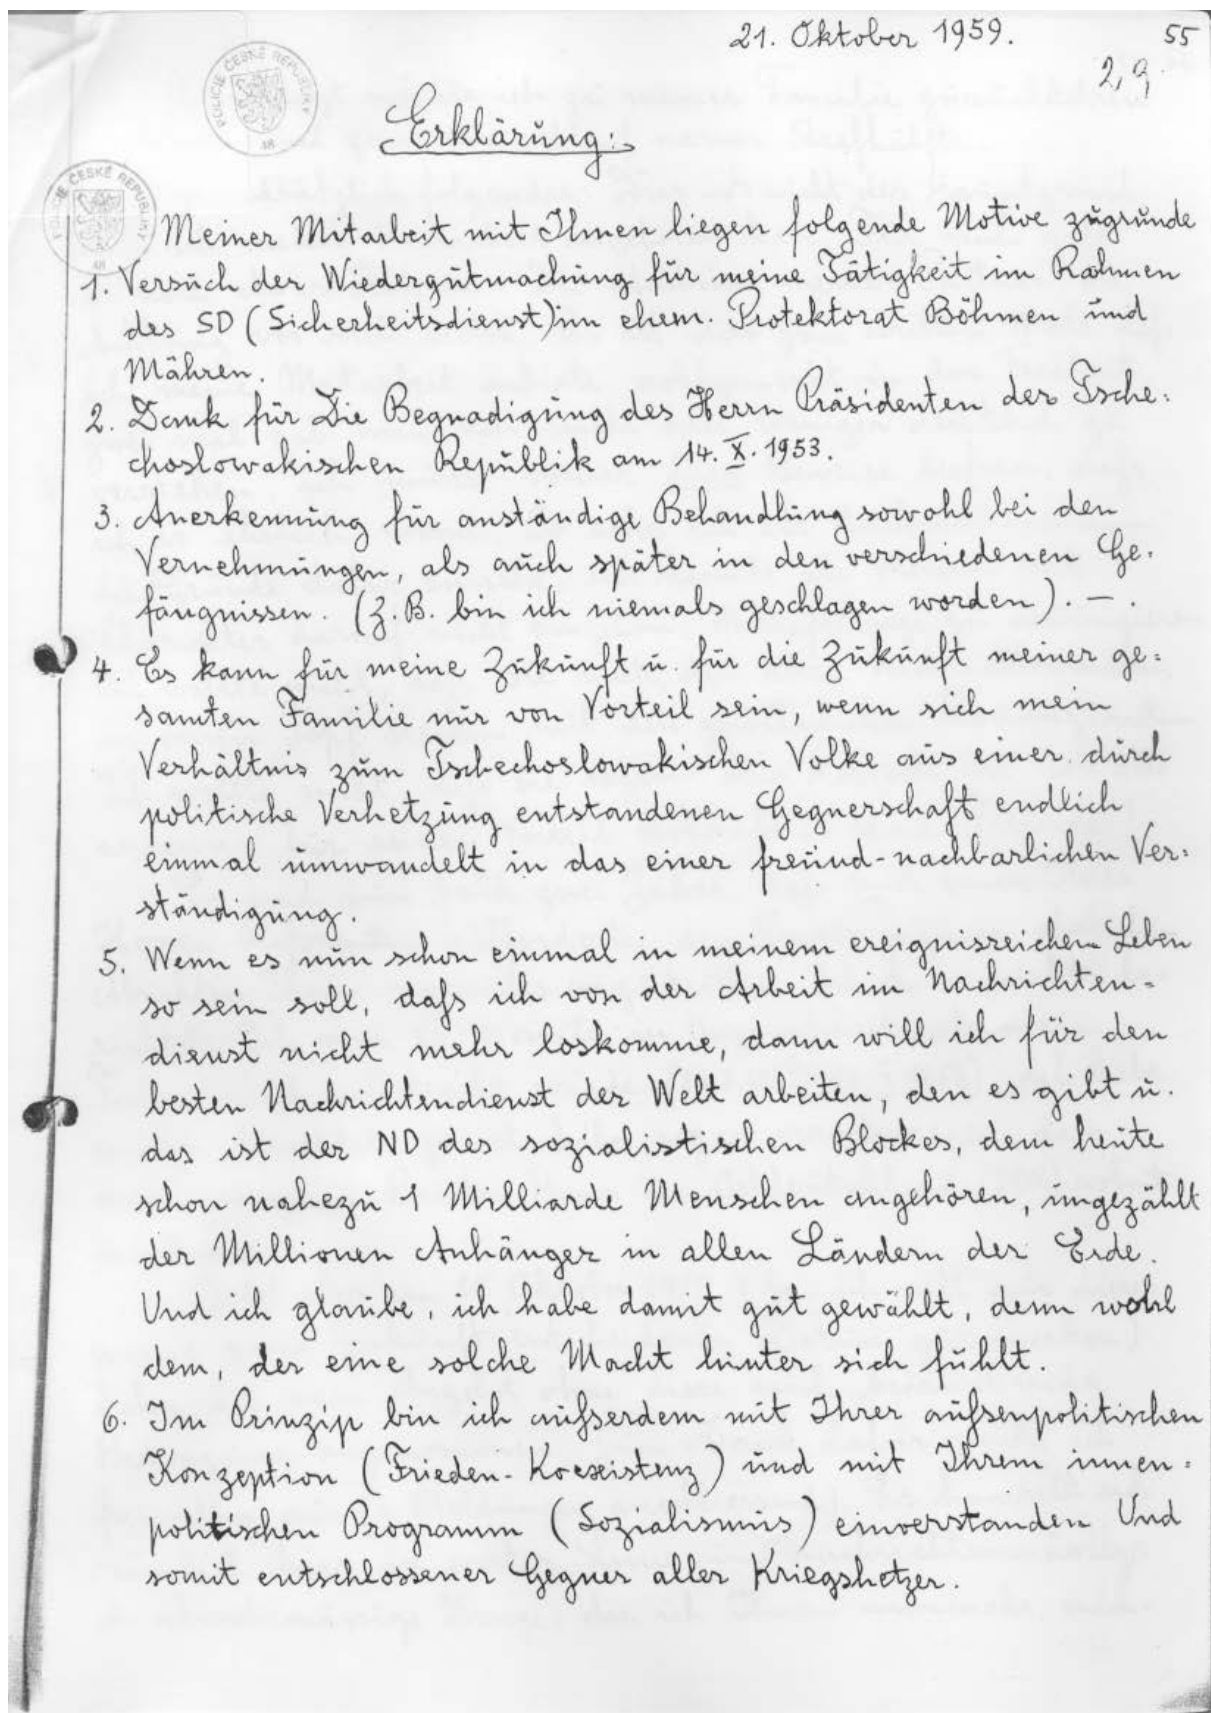 21. Oktober 1959.
55
29
POLICIE ČESKÉ REPUBLIKY
48
Erklärung:
POLICIE ČESKÉ REPUBLIKY
48
Meiner Mitarbeit mit Ihnen liegen folgende Motive zugrunde
1. Versuch der Wiedergutmachung für meine Tätigkeit im Rahmen
des SD (Sicherheitsdienst) im ehem. Protektorat Böhmen und
Mähren.
2. Dank für Die Begnadigung des Herrn Präsidenten der Tsche=
choslowakischen Republik am 14. X. 1953.
3. Anerkennung für anständige Behandlung sowohl bei den
Vernehmungen, als auch später in den verschiedenen Ge=
fängnissen. (z. B. bin ich niemals geschlagen worden). – .
4. Es kann für meine Zukunft u. für die Zukunft meiner ge=
samten Familie nur von Vorteil sein, wenn sich mein
Verhältnis zum Tschechoslowakischen Volke aus einer durch
politische Verhetzung entstandenen Gegnerschaft endlich
einmal umwandelt in das einer freund-nachbarlichen Ver=
ständigung.
5. Wenn es nun schon einmal in meinem ereignisreichen Leben
so sein soll, daß ich von der Arbeit im Nachrichten=
dienst nicht mehr loskomme, dann will ich für den
besten Nachrichtendienst der Welt arbeiten, den es gibt u.
das ist der ND des sozialistischen Blockes, dem heute
schon nahezu 1 Milliarde Menschen angehören, ungezählt
der Millionen Anhänger in allen Ländern der Erde.
Und ich glaube, ich habe damit gut gewählt, denn wohl
dem, der eine solche Macht hinter sich fühlt.
6. Im Prinzip bin ich außerdem mit Ihrer außenpolitischen
Konzeption (Frieden-Koexistenz) und mit Ihrem innen=
politischen Programm (Sozialismus) einverstanden Und
somit entschlossener Gegner aller Kriegshetzer.